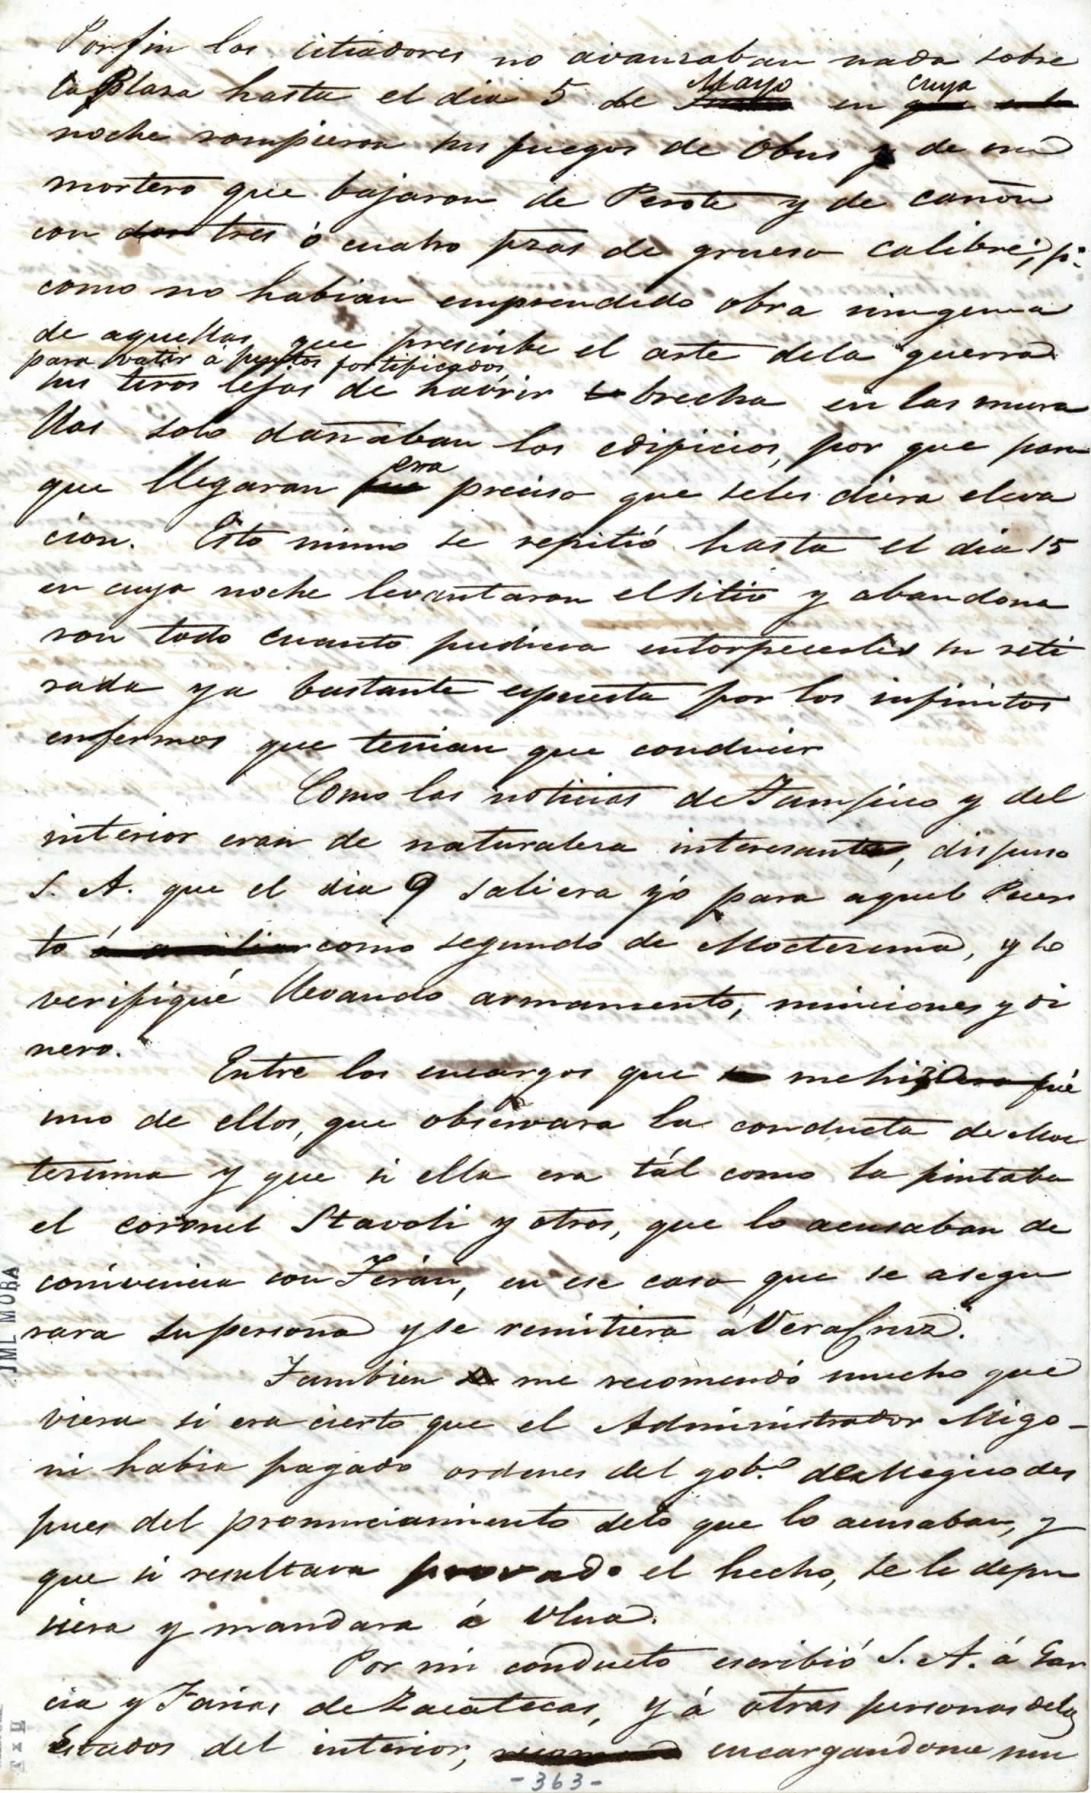 Por fin los citiadores no avanzaban nada sobre
la Plaza hasta el dia 5 de Mayo en cuya
noche rompieron sus fuegos de Obus y de un
mortero que bajaron de Perote y de cañon
con tres ó cuatro pzas de grueso calibre; p.ͦ
como no habian emprendido obra ninguna
de aquellas que prescribe el arte dela guerra
para vatir á puntos fortificados
sus tiros lejos de havrir brecha en las mura
llas solo dañaban los edificios, por que para
que llegaran era preciso que seles diera eleva
cion. Esto mismo se repitió hasta el dia 15
en cuya noche levantaron elsitio y abandona
ron todo cuanto pudiera entorpecerles su reti
rada ya bastante espuesta por los infinitos
enfermos que tenian que conducir
Como las noticias de Tampico y del
interior eran de naturaleza interesante, dispuso
S. A. que el dia 9 saliera yó para aquel Puer
to como segundo de Moctezuma, y lo
verifiqué llevando armamento, municiones y di
nero.
Entre los encargos que me hizo fué
uno de ellos, que observara la conducta de Moc
tezuma y que si ella era tál como la pintaba
el coronel Stavoli y otros, que lo acusaban de
conivencia con Terán, en ese caso que se asegu
rara su persona y se remitiera á VeraCruz.
Tambien me recomendó mucho que
viera si era cierto que el Administrador Migo-
ni habia pagado ordenes del gob.ͦ de Megico des
pues del pronunciamiento delo que lo acusaban, y
que si resultava provado el hecho, se le depu
siera y mandara á Ulua.
Por mi conducto escribió S. A. á Gar
cia y Farias de Zacatecas, y á otras personas delos
Estados del interior, encargandome mu
-363-
JML MORA